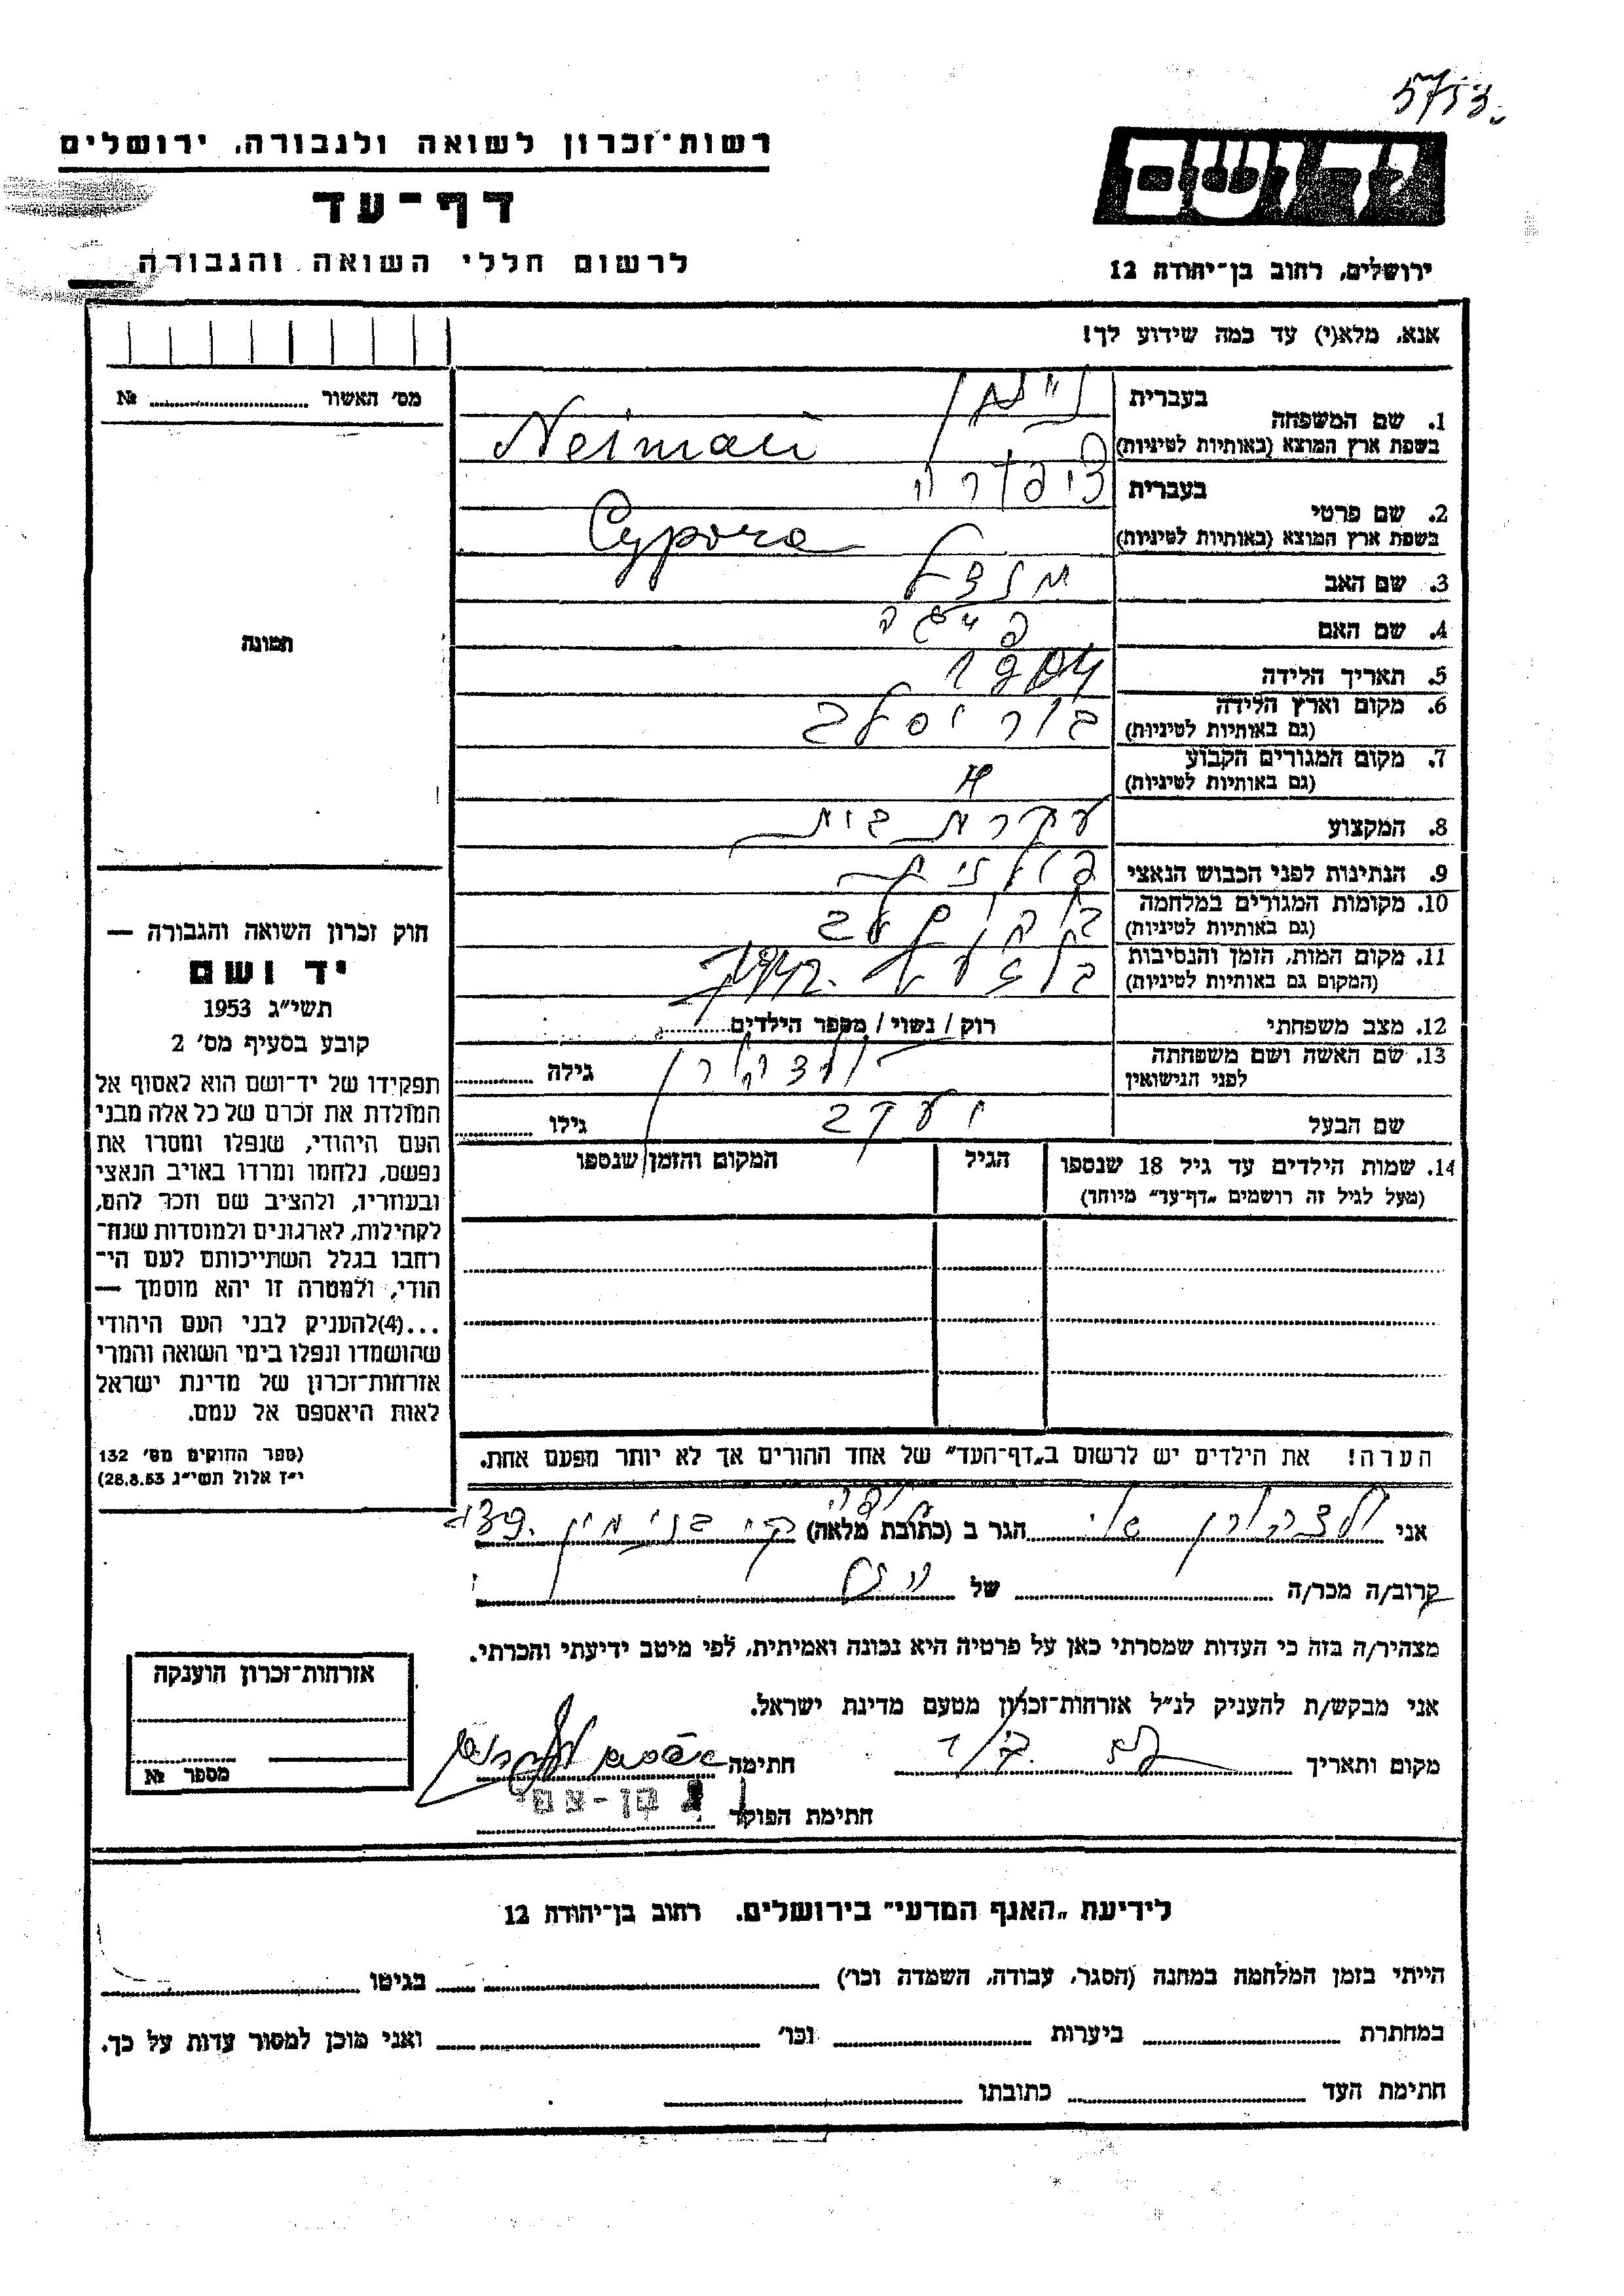 5753
רשות־זכרון לשואה ולגבורה, ירושלים
יד ושם
דף־עד
לרשום חללי השואה והגבורה
ירושלים, רחוב בן־יהודה 12
אנא, מלא(י) עד כמה שידוע לך!
מס' האשור № 
1. שם המשפחה
בעברית נוימן
בשפת ארץ המוצא (באותיות לטיניות) Neiman
2. שם פרטי
בעברית ציפורה
בשפת ארץ המוצא (באותיות לטיניות) Cypora
3. שם האב מנדל
4. שם האם פייגה
5. תאריך הלידה 1904
6. מקום וארץ הלידה
(גם באותיות לטיניות) בוריסלב
7. מקום המגורים הקבוע
(גם באותיות לטיניות) "
8. המקצוע עקרת בית
9. הנתינות לפני הכבוש הנאצי פולנית
10. מקומות המגורים במלחמה
(גם באותיות לטיניות) בוריסלב
11. מקום המות, הזמן והנסיבות
(המקום גם באותיות לטיניות) בלזעץ
12. מצב משפחתי רוק / נשוי / מספר הילדים
13. שם האשה ושם משפחתה
לפני הנישואין גילה
שם הבעל יעקב גילו
14. שמות הילדים עד גיל 18 שנספו
(מעל לגיל זה רושמים „דף־עד" מיוחד)
הגיל
המקום והזמן שנספו
הערה! את הילדים יש לרשום ב„דף־העד" של אחד ההורים אך לא יותר מפעם אחת.
תמונה
חוק זכרון השואה והגבורה —
יד ושם
תשי"ג 1953
קובע בסעיף מס' 2
תפקידו של יד־ושם הוא לאסוף אל
המולדת את זכרם של כל אלה מבני
העם היהודי, שנפלו ומסרו את
נפשם, נלחמו ומרדו באויב הנאצי
ובעוזריו, ולהציב שם וזכר להם,
לקהילות, לארגונים ולמוסדות שנח־
רחבו בגלל השתייכותם לעם הי־
הודי, ולמטרה זו יהא מוסמך —
...(4)להעניק לבני העם היהודי
שהושמדו ונפלו בימי השואה והמרי
אזרחות־זכרון של מדינת ישראל
לאות היאספם אל עמם.
(ספר החוקים מס' 132
י"ז אלול תשי"ג 28.8.53)
אני הגר ב (כתובת מלאה) בנימין
קרוב/ה מכר/ה של
מצהיר/ה בזה כי העדות שמסרתי כאן על פרטיה היא נכונה ואמיתית, לפי מיטב ידיעתי והכרתי.
אני מבקש/ת להעניק לנ"ל אזרחות־זכרון מטעם מדינת ישראל.
מקום ותאריך חתימה
חתימת הפוקד בן-צבי
אזרחות־זכרון הוענקה
מספר №
לידיעת „האגף המדעי" בירושלים, רחוב בן־יהודה 12
הייתי בזמן המלחמה במחנה (הסגר, עבודה, השמדה וכו') בגיטו
במחתרת ביערות וכו' ואני מוכן למסור עדות על כך.
חתימת העד כתובתו